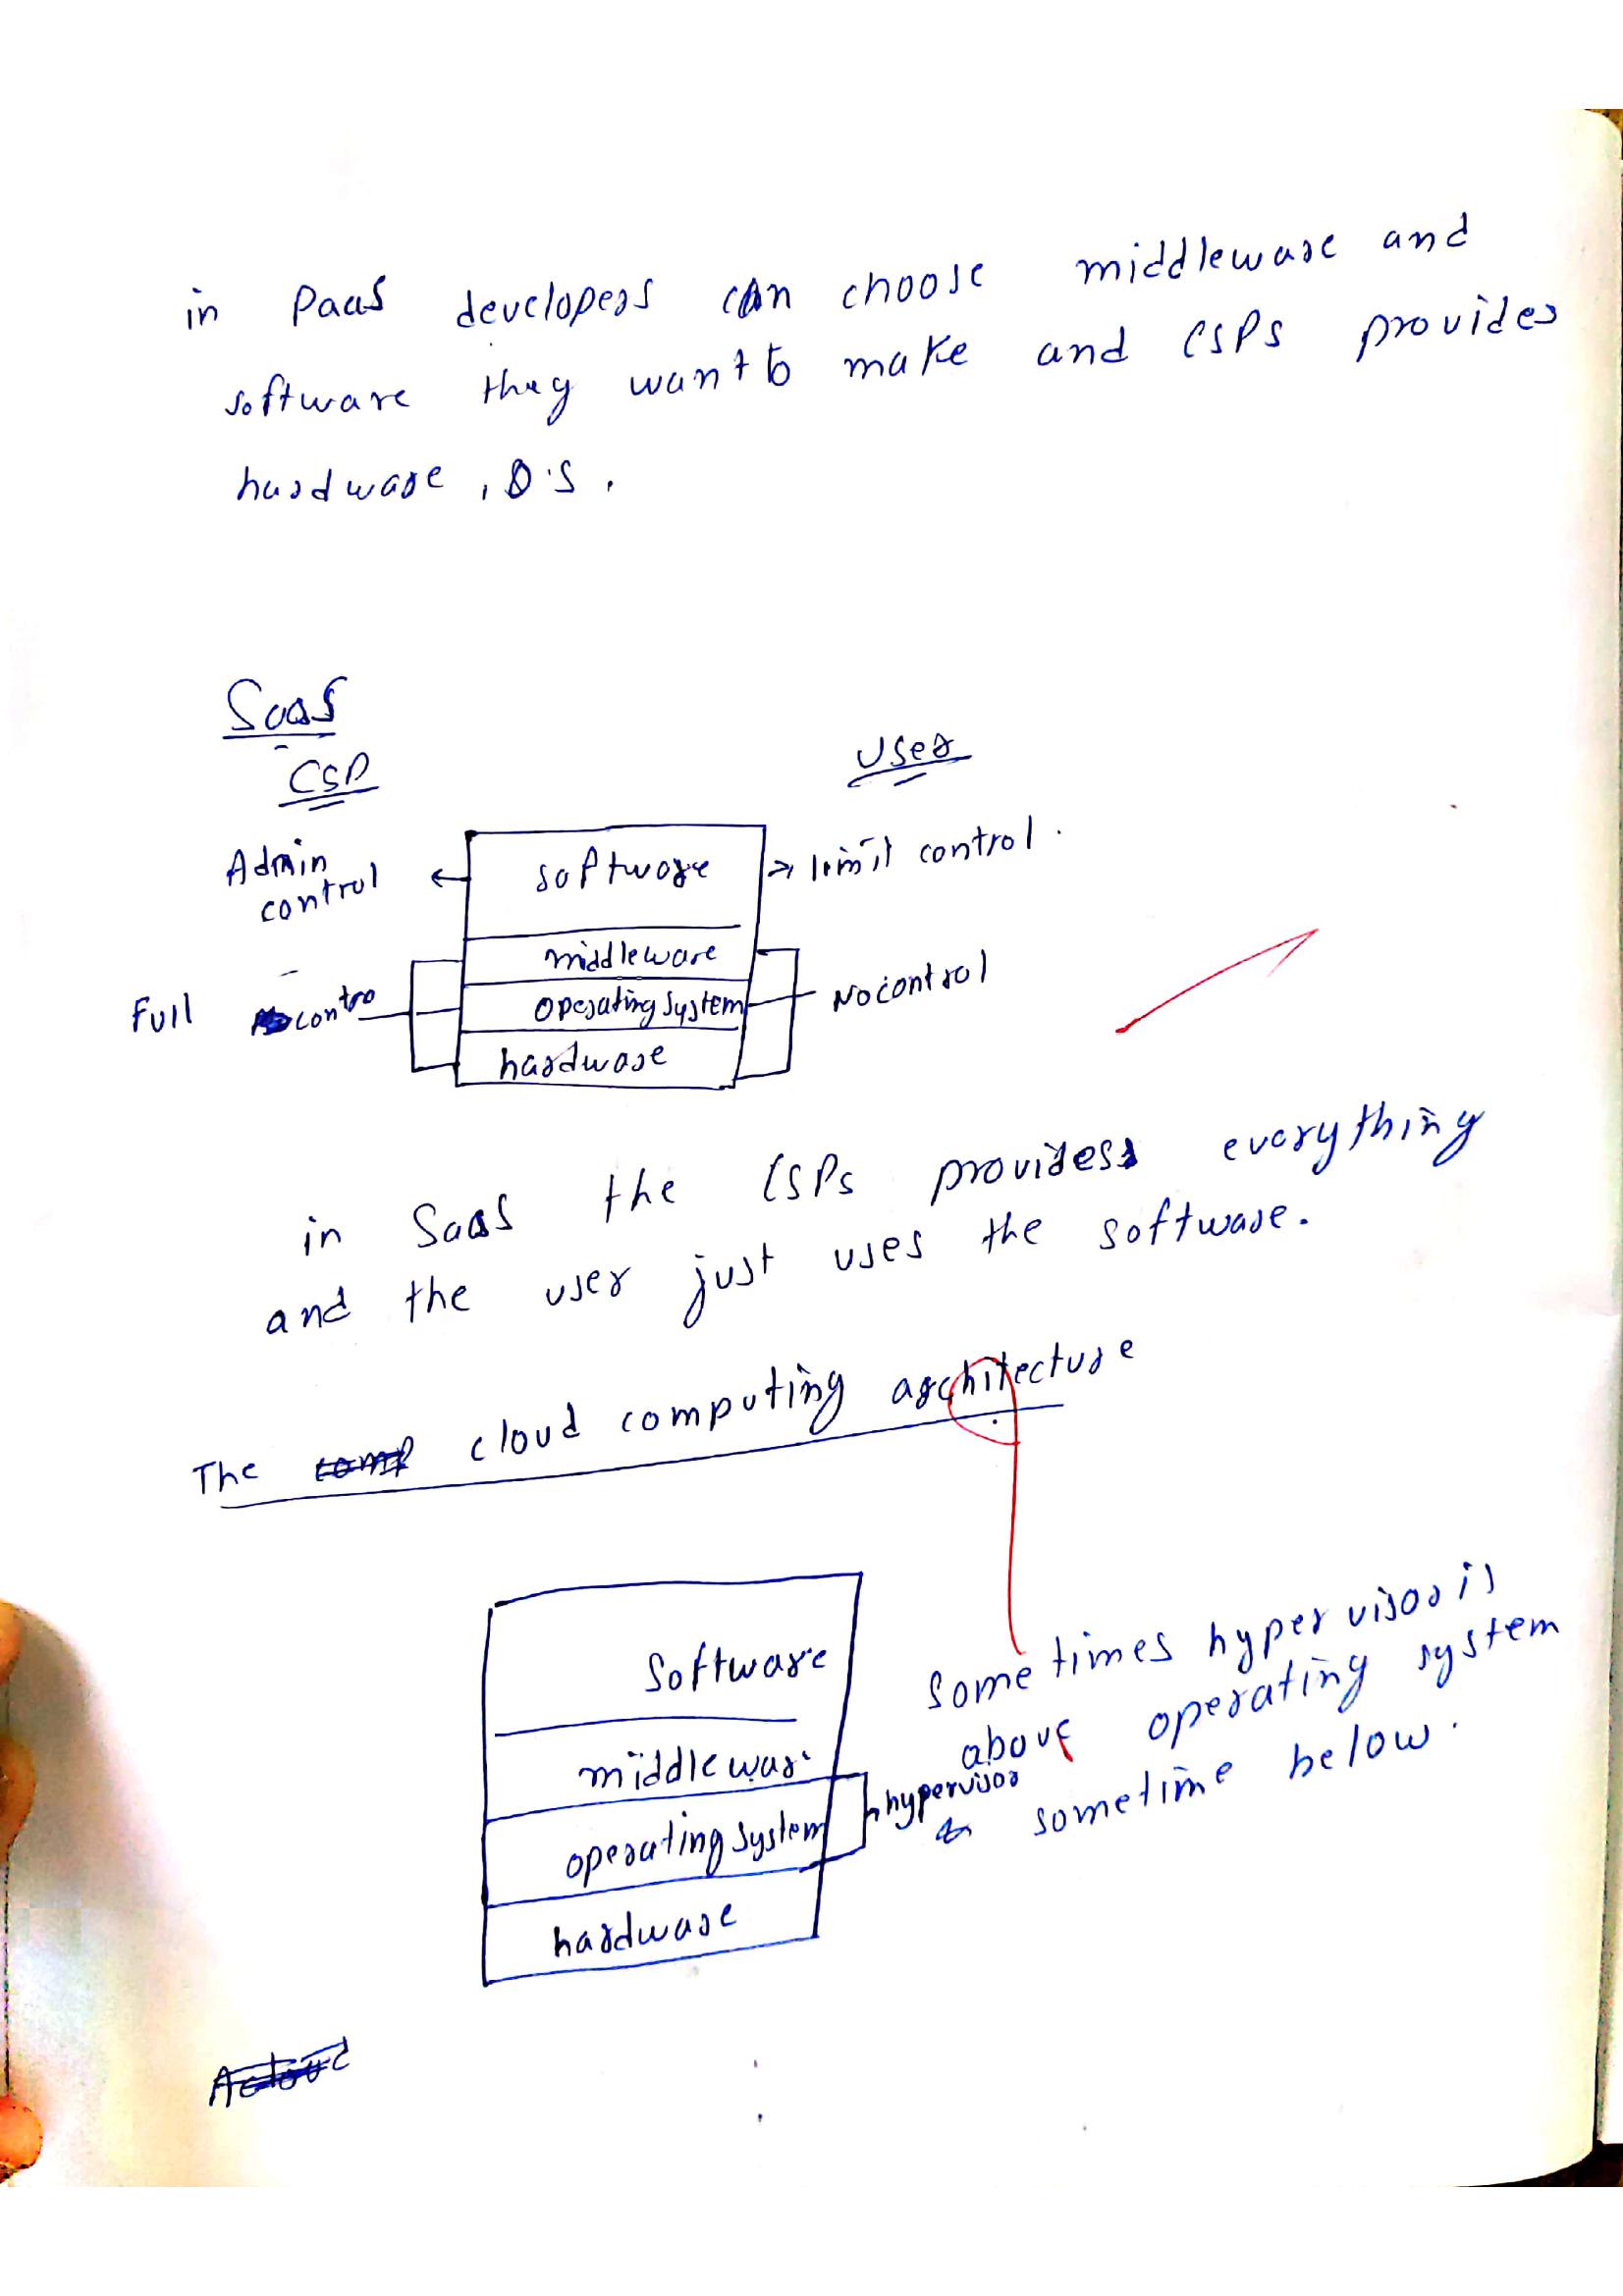 in PaaS developers can choose middleware and
software they want to make and CSPs provides
hardware, O.S.
SaaS
CSP
User
Admin
control
software
limit control.
middleware
Full contro
operating system
No control
hardware
in SaaS the CSPs provides everything
and the user just uses the software.
The cloud computing architecture
Software
middlewar
operating system
hardware
hypervisor
Some times hyper visor is
above operating system
sometime below.